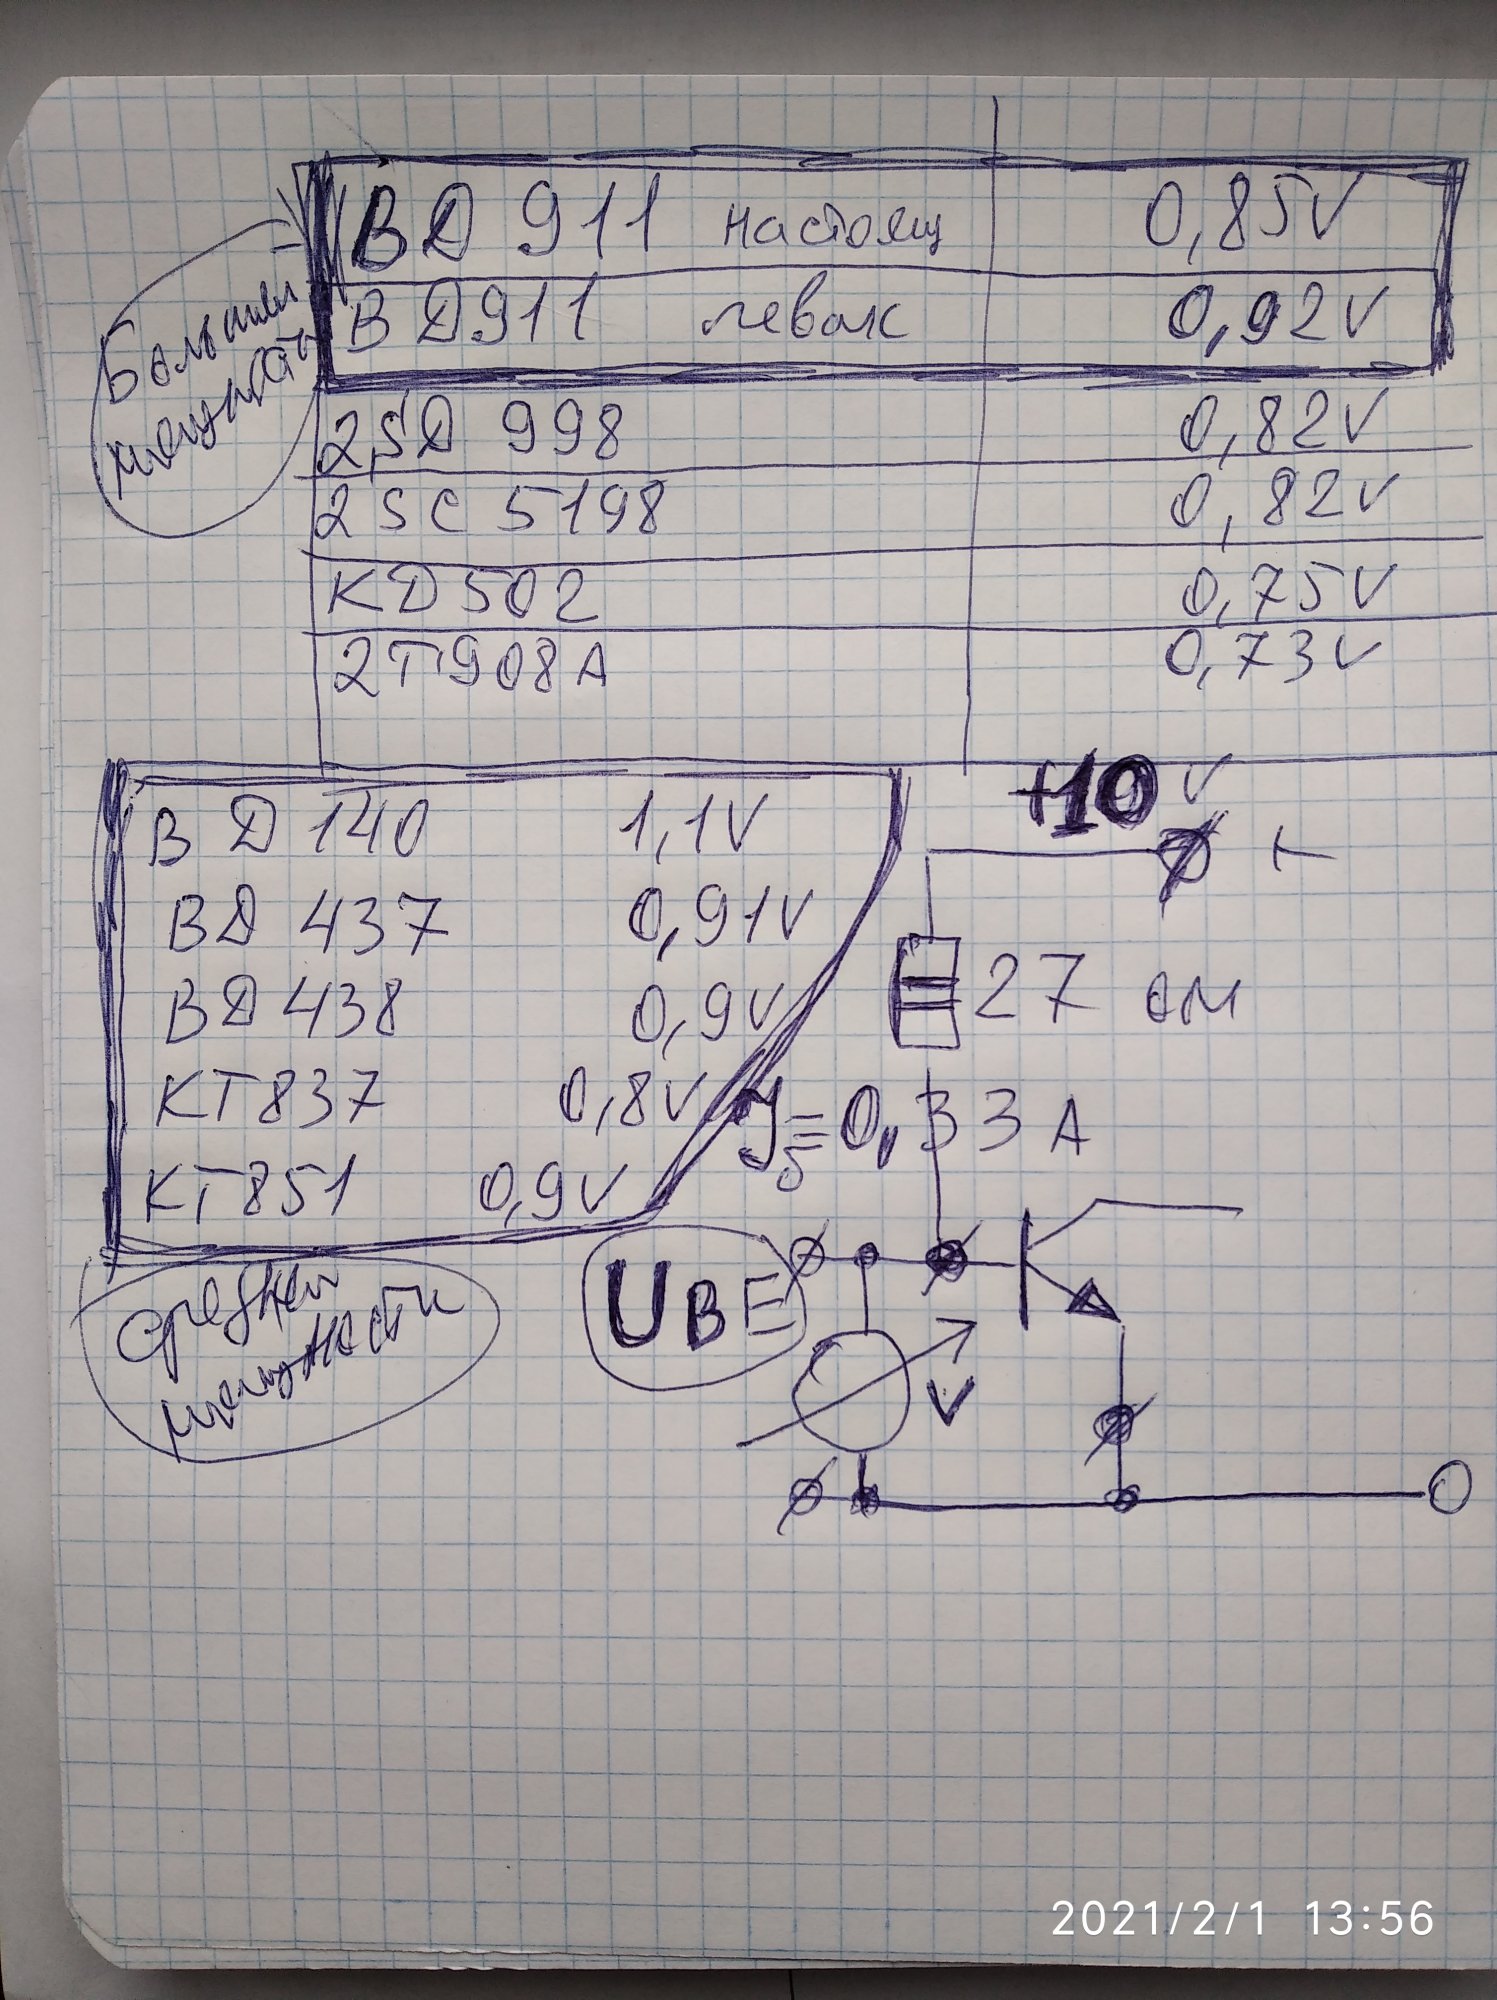 Большой
мощности
BD 911 настоящ 0,85V
BD911 левак 0,92V
2SD 998 0,82V
2SC 5198 0,82V
KD502 0,75V
2T908A 0,73V
BD 140 1,1V
BD 437 0,91V
BD 438 0,9V
KT837 0,8V
KT851 0,9V
средней
мощности
+10 V
+
27 ом
Iб=0,33 A
UBE
V
0
2021/2/1 13:56